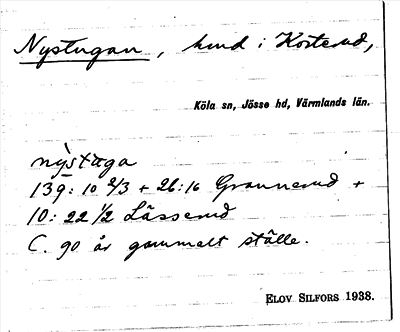 Nystugan, hmd i Kosterud,
Köla sn, Jösse hd, Värmlands län.
nystuga
139: 10 2/3 + 26:16 Grannerud +
10: 22 1/2 Lässerud
C. 90 år gammalt ställe.
ELOV SILFORS 1938.